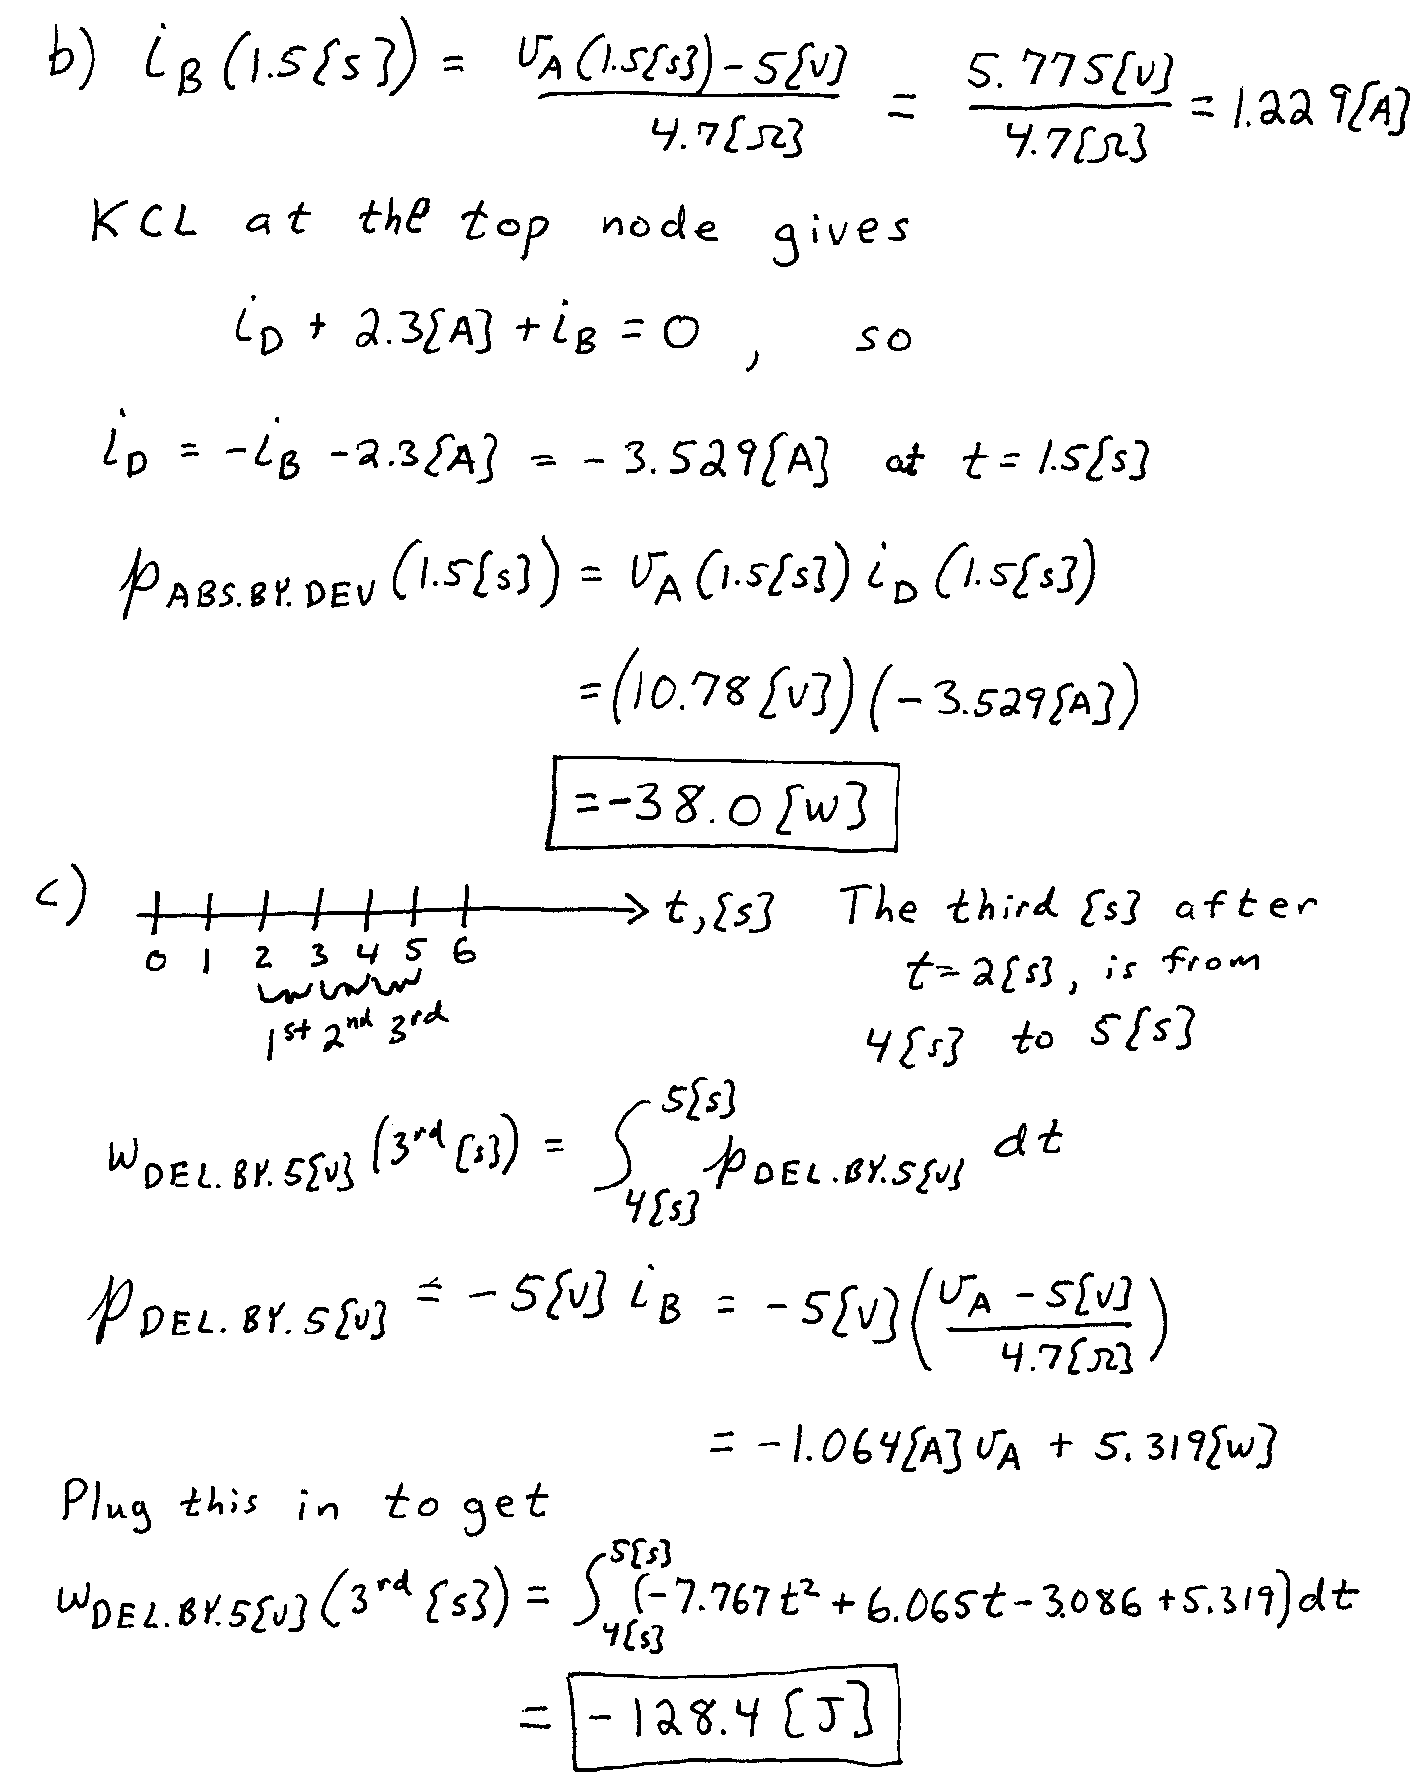 b) i_B (1.5[s]) = v_A (1.5[s]) - 5[V] / 4.7[Ω] = 5.775[V] / 4.7[Ω] = 1.229[A]
KCL at the top node gives
i_D + 2.3[A] + i_B = 0 , so
i_D = -i_B - 2.3[A] = -3.529[A] at t = 1.5[s]
p_ABS.BY.DEV (1.5[s]) = v_A (1.5[s]) i_D (1.5[s])
= (10.78[V]) (-3.529[A])
= -38.0[W]
c) t,[s] The third [s] after
0 1 2 3 4 5 6 t=2[s], is from
1st 2nd 3rd 4[s] to 5[s]
w_DEL.BY.5[V] (3rd [s]) = ∫_4[s]^5[s] p_DEL.BY.5[V] dt
p_DEL.BY.5[V] = -5[V] i_B = -5[V] (v_A - 5[V] / 4.7[Ω])
= -1.064[A] v_A + 5.319[W]
Plug this in to get
w_DEL.BY.5[V] (3rd [s]) = ∫_4[s]^5[s] (-7.767t² + 6.065t - 3.086 + 5.319) dt
= -128.4 [J]